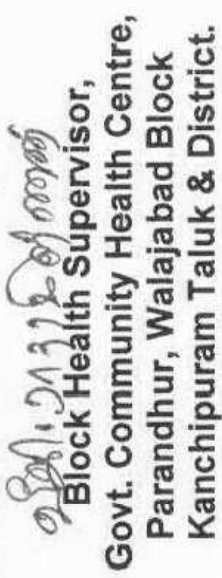 Block Health Supervisor,
Govt. Community Health Centre,
Parandhur, Walajabad Block
Kanchipuram Taluk & District.